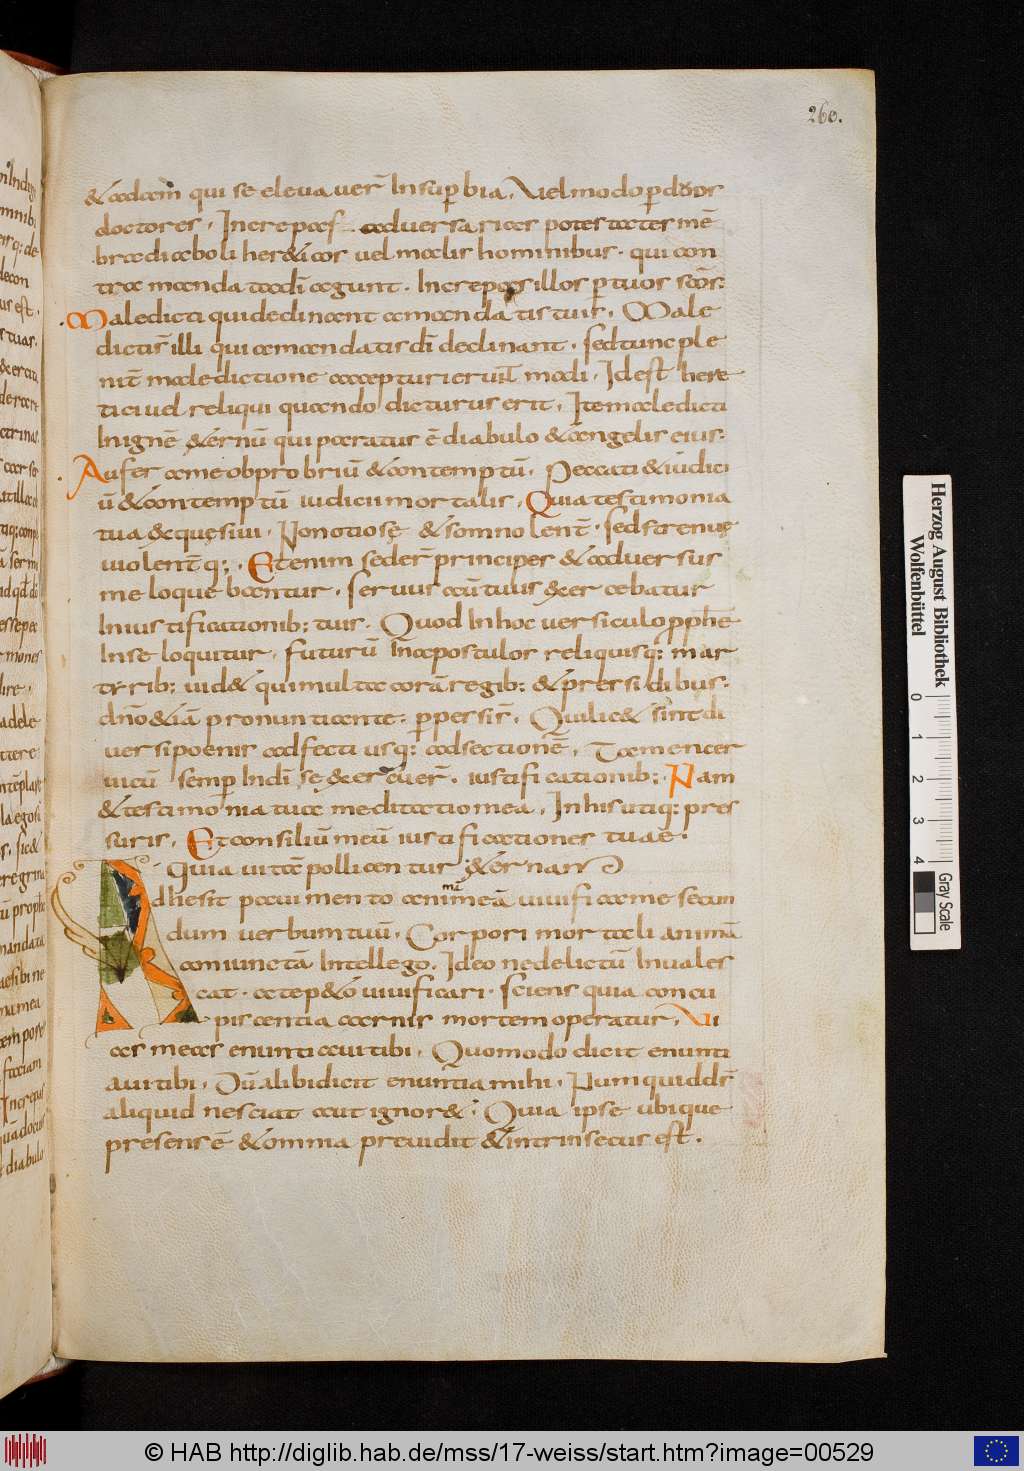 260.
& adam qui se elevaver̄ In sup̄bia, vel modo p̄
doctores. Increpas adversarias potestates mē
bra diaboli her&icos vel malis hominibus. qui con
tra manda tadi agunt. Increpas illos p̄ tuos scōs:
Maledicti qui declinant amandatis tuis. Male
dictis illi qui amandatis dī declinant. sed tunc ple
nit̄ maledictione accepturi erunt mali. Id est here
tici vel reliqui quando dicturus erit. Ite maledicti
In ignē &ernū qui paratus ē diabulo & angelis eius:
Aufer ame obprobriū & contemptū. Peccati & iudici
ū & contemptū iudicii mortalis. Quia testimonia
tua exquęsivi. Non otiosę & somnolent̄. sed strenuę
violent̄q;. Etenim seder̄ principes & adversus
me loquebantur. servus aū tuus exercebatur
In iustificationib; tuis. Quod In hoc versiculo pph̄e
In se loquitur. futurū In apostulos reliquisq; mar
tyrib; vid& qui multa corā regib; & presidibus.
dn̄o & iā pronuntiante. p̄persis̄. Qui lic& sint di
versi poenis adfecti usq; ad sectionē. Tamen cer
vicū semp̄ Indī se exercuer̄. iustificationib;. Nam
& testimonia tua meditatio mea. In his utiq; pres
suris. Et consilium meū iustificationes tuae.
Quia vita pollicentur &ernam
Adhesit pavimento animā meā vivifica me secun
dum verbum tuū. Corpori mortali animā
coniunctā Intellego. Ideo ne delictū Invales
cat. at ep&o vivificari. sciens quia concu
piscentia carnis mortem operatur. Vi
as meas enuntiavi tibi. Quomodo dicit enunti
avi tibi. Dū alibi dicit enuntia mihi. Numquid ds̄
aliquid nesciat aut ignor&. Quia ipse ubique
presens ē & omnia previdit & intrinsecus est.
Herzog August Bibliothek
Wolfenbüttel
0 1 2 3 4
Gray Scale
© HAB http://diglib.hab.de/mss/17-weiss/start.htm?image=00529